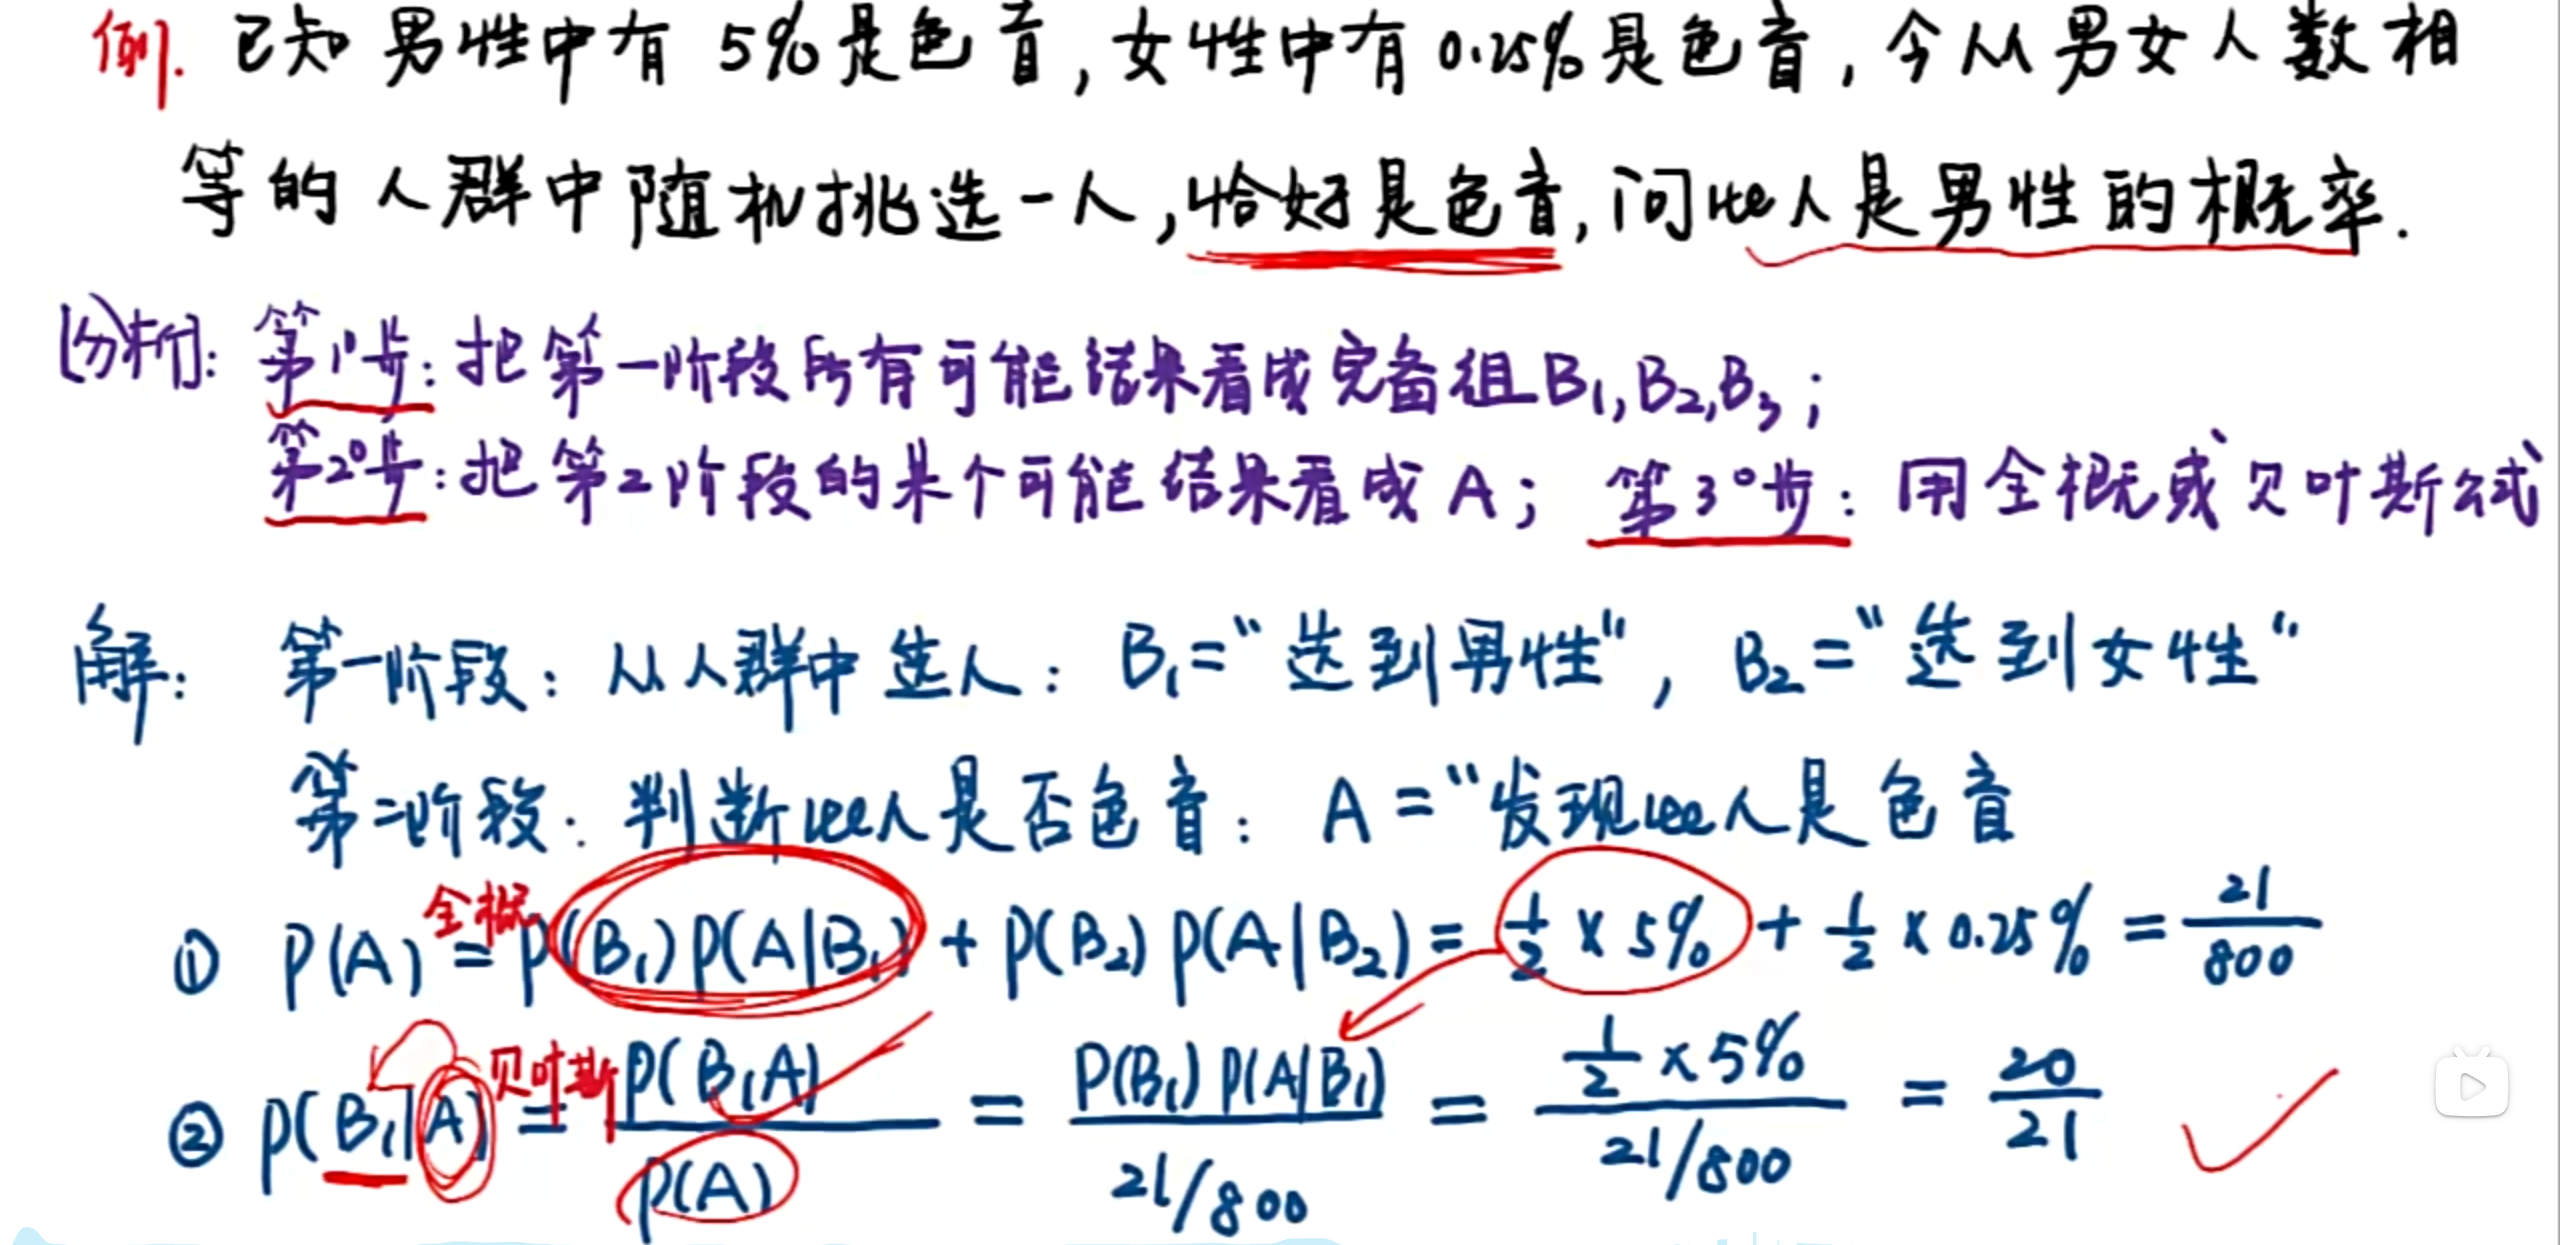 例. 已知男性中有 5% 是色盲,女性中有 0.25% 是色盲,今从男女人数相
等的人群中随机挑选一人,恰好是色盲,问此人是男性的概率.
分析: 第1°步: 把第一阶段所有可能结果看成完备组B₁,B₂,B₃;
第2°步: 把第2阶段的某个可能结果看成A; 第3°步: 用全概或贝叶斯公式
解: 第一阶段: 从人群中选人: B₁="选到男性", B₂="选到女性"
第二阶段: 判断此人是否色盲: A="发现此人是色盲
① P(A) 全概= P(B₁)P(A|B₁) + P(B₂)P(A|B₂) = 1/2 × 5% + 1/2 × 0.25% = 21/800
② P(B₁|A) 贝叶斯= P(B₁A)/P(A) = P(B₁)P(A|B₁)/(21/800) = (1/2 × 5%)/(21/800) = 20/21